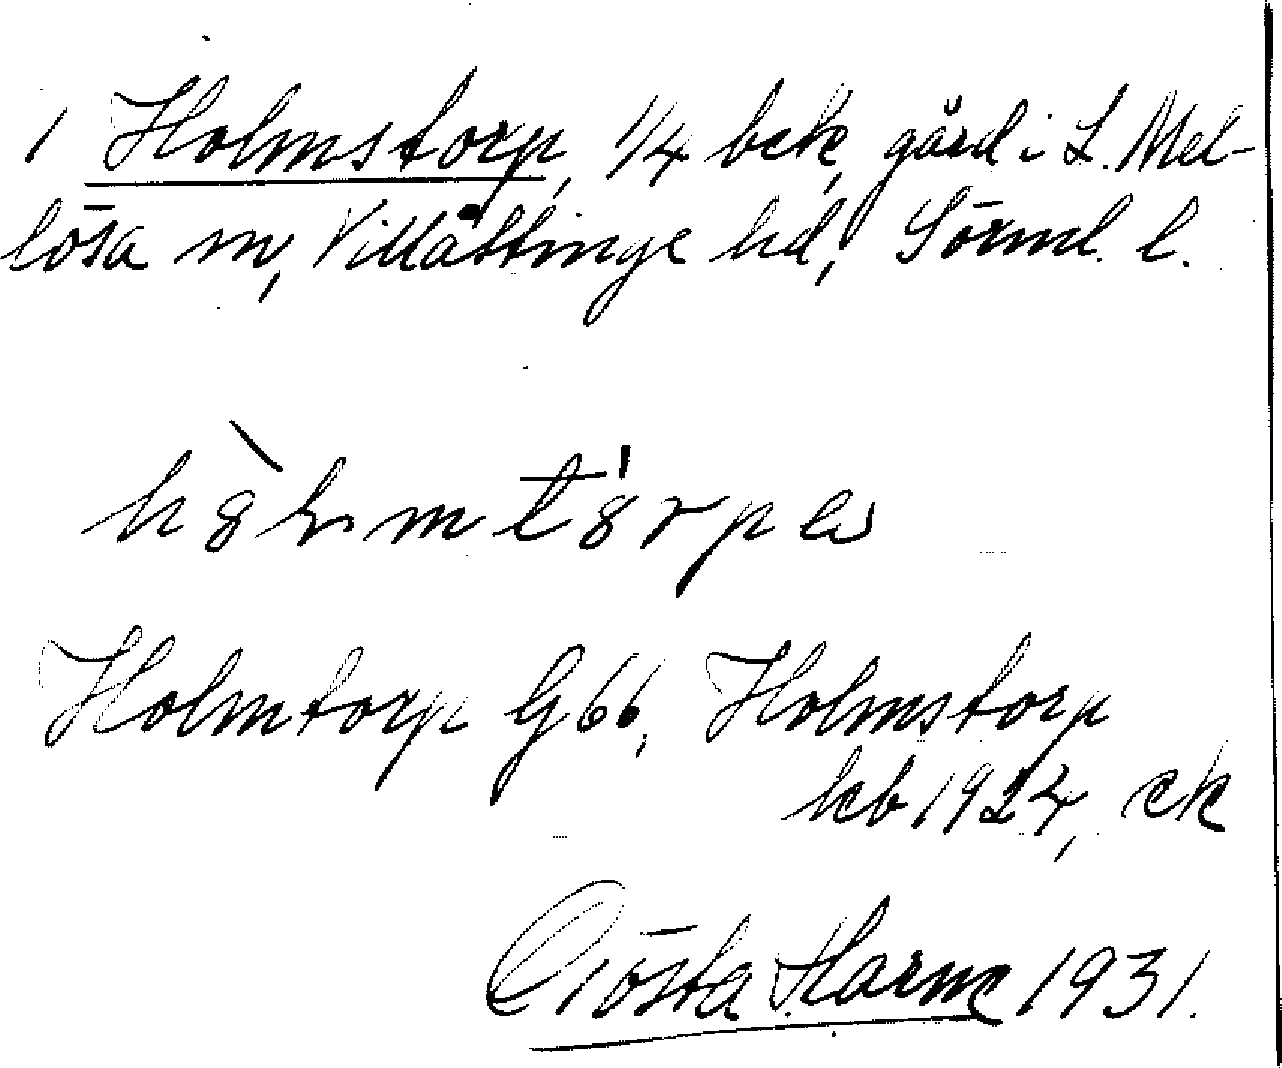 1 Holmstorp, 1/4 bek, gård i L. Mel-
lösa sn, Villåttinge hd, Sörml. l.
Holmtorp G66, Holmstorp
kb 1924, ek
Gösta Harme 1931.